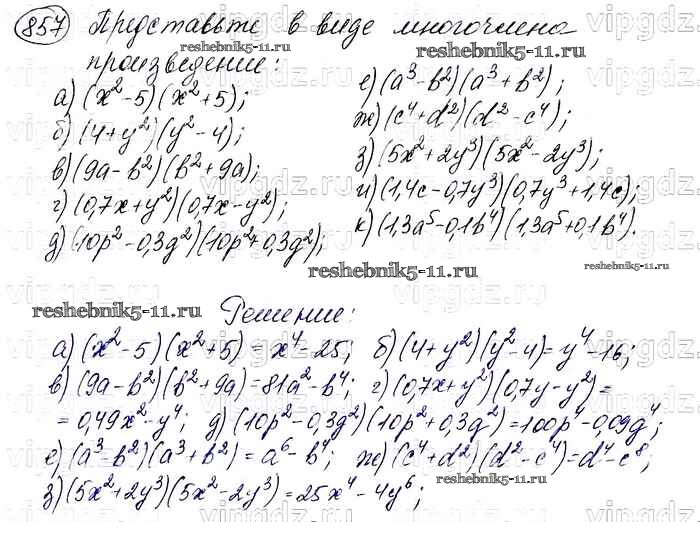 857 Представьте в виде многочлена
reshebnik5-11.ru
произведение:
а) (x² - 5)(x² + 5);
б) (4 + y²)(y² - 4);
в) (9a - b²)(b² + 9a);
г) (0,7x + y²)(0,7x - y²);
д) (10p² - 0,3q²)(10p² + 0,3q²);
е) (a³ - b²)(a³ + b²);
ж) (c⁴ + d²)(d² - c⁴);
з) (5x² + 2y³)(5x² - 2y³);
и) (1,4c - 0,7y³)(0,7y³ + 1,4c);
к) (1,3a⁵ - 0,1b⁴)(1,3a⁵ + 0,1b⁴).
reshebnik5-11.ru
reshebnik5-11.ru
Решение:
а) (x² - 5)(x² + 5) = x⁴ - 25; б) (4 + y²)(y² - 4) = y⁴ - 16;
в) (9a - b²)(b² + 9a) = 81a² - b⁴; г) (0,7x + y²)(0,7y - y²) =
= 0,49x² - y⁴; д) (10p² - 0,3q²)(10p² + 0,3q²) = 100p⁴ - 0,09q⁴;
е) (a³ - b²)(a³ + b²) = a⁶ - b⁴; ж) (c⁴ + d²)(d² - c⁴) = d⁴ - c⁸;
з) (5x² + 2y³)(5x² - 2y³) = 25x⁴ - 4y⁶;
reshebnik5-11.ru